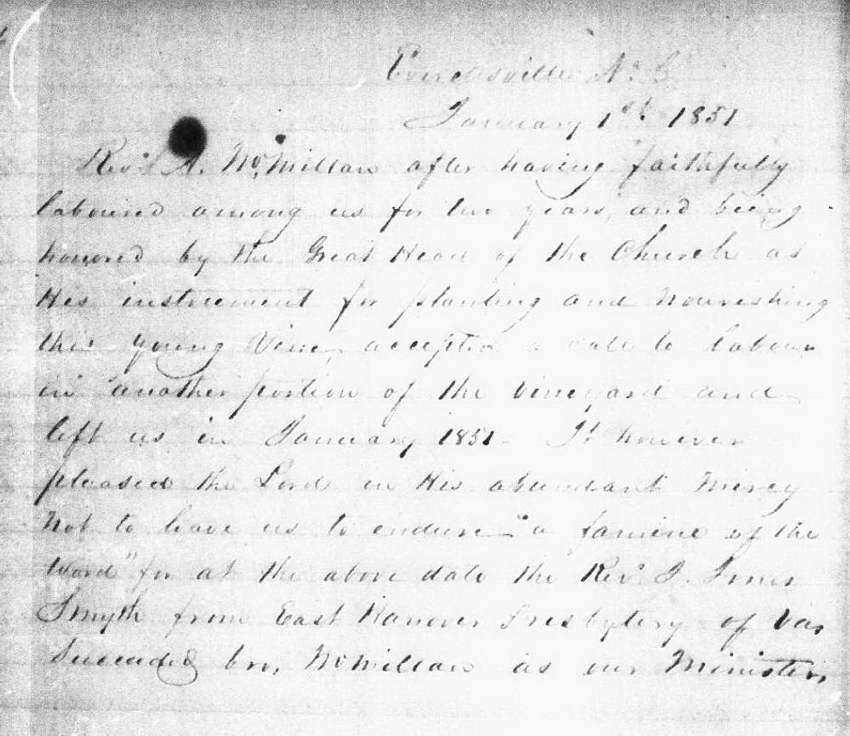 Everettsville N. C.
January 1st 1851
Revd A. McMillan after having faithfully
laboured among us for two years, and being
honored by the Great Head of the Church as
His instrument for planting and nourishing
this young Vine, accepted a call to labour
in another portion of the vineyard and
left us in January 1851 - It however
pleased the Lord in His abundant Mercy
Not to leave us to endure "a famine of the
Word" for at the above date the Revd J. Jones
Smyth from East Hanover Presbytery of Va,
Succeeded bro, McMillan as our Minister,